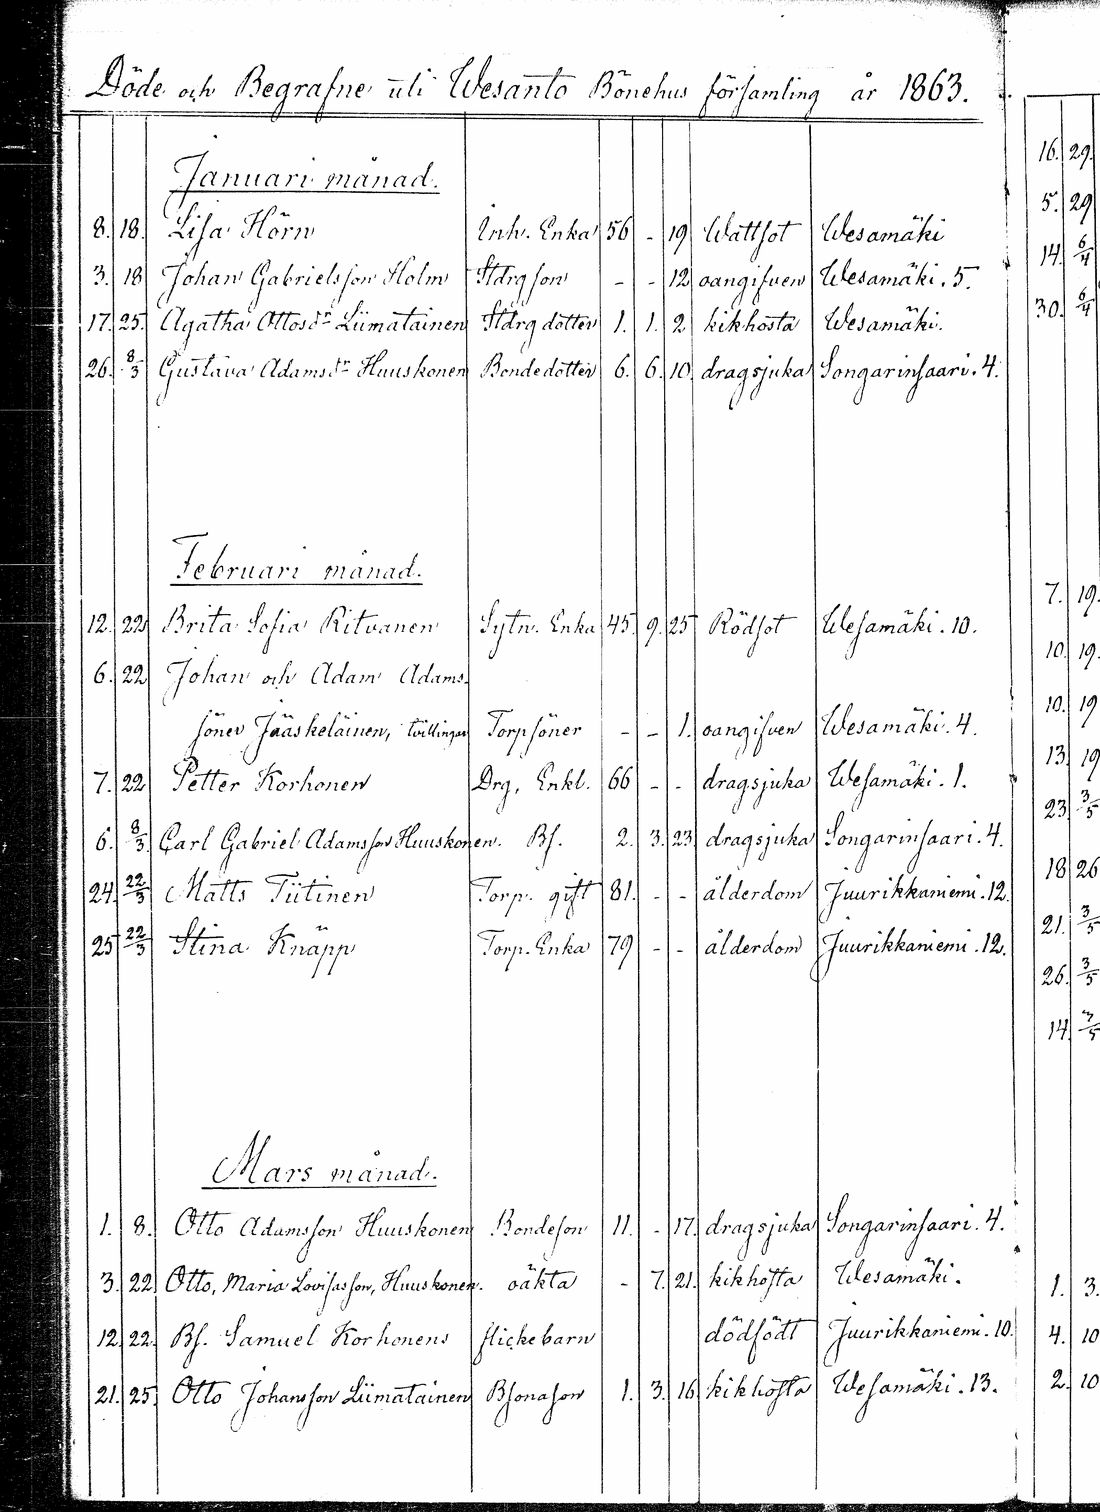 Döde och Begrafne uti Wesanto Bönehus församling år 1863.
Januari månad.
8. 18. Lisa Hörn Inh. Enka 56 - 19 Wattsot Wesamäki
3. 18 Johan Gabrielsson Holm Stdrgson - - 12 oangifven Wesamäki. 5.
17. 25. Agatha Ottosdr Liimatainen Stdrg dotter 1. 1. 2 kikhosta Wesamäki.
26. 8/3 Gustava Adamsdr Huuskonen Bondedotter 6. 6. 10. dragsjuka Songarinsaari. 4.
Februari månad.
12. 22 Brita Sofia Ritvanen Sytn. Enka 45 9. 25 Rödsot Wesamäki. 10.
6. 22 Johan och Adam Adams-
söner Jääskeläinen, tvillingar Torpsöner - - 1. oangifven Wesamäki. 4.
7. 22 Petter Korhonen Drg, Enkl. 66 - - dragsjuka Wesamäki. 1.
6. 8/3 Carl Gabriel Adamsson Huuskonen. Bs. 2. 3. 23 dragsjuka Songarinsaari. 4.
24. 22/3 Matts Tiitinen Torp. gift 81. - - ålderdom Juurikkaniemi. 12.
25 22/3 Stina Knäpp Torp. Enka 79 - - ålderdom Juurikkaniemi. 12.
Mars månad.
1. 8. Otto Adamsson Huuskonen Bondeson 11. - 17. dragsjuka Songarinsaari. 4.
3. 22 Otto, Maria Lovisasson, Huuskonen. oäkta - 7. 21. kikhosta Wesamäki.
12. 22. Bs. Samuel Korhonens flickebarn dödfödt Juurikkaniemi. 10.
21. 25. Otto Johansson Liimatainen Bsonason 1. 3. 16. kikhosta Wesamäki. 13.
16. 29.
5. 29
14. 6/4
30. 6/4
7. 19.
10. 19.
10. 19
13. 19
23. 3/5
18 26
21. 3/5
26. 3/5
14.
1. 3.
4. 10
2. 10